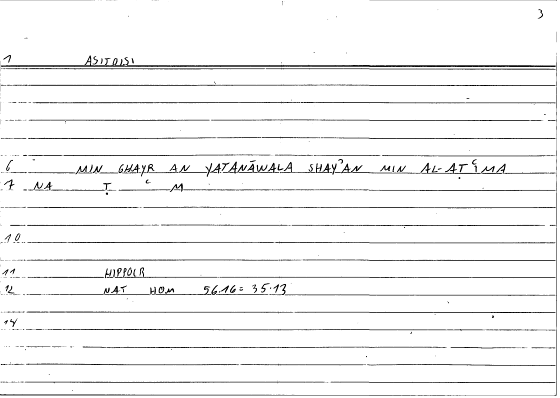 3
1 ASITOISI
6 MIN GHAYR AN YATANĀWALA SHAYʾAN MIN AL-AṬʿIMA
7 NA Ṭ ʿ M
10
11 HIPPOCR
12 NAT HOM 56.16 = 35.13
14